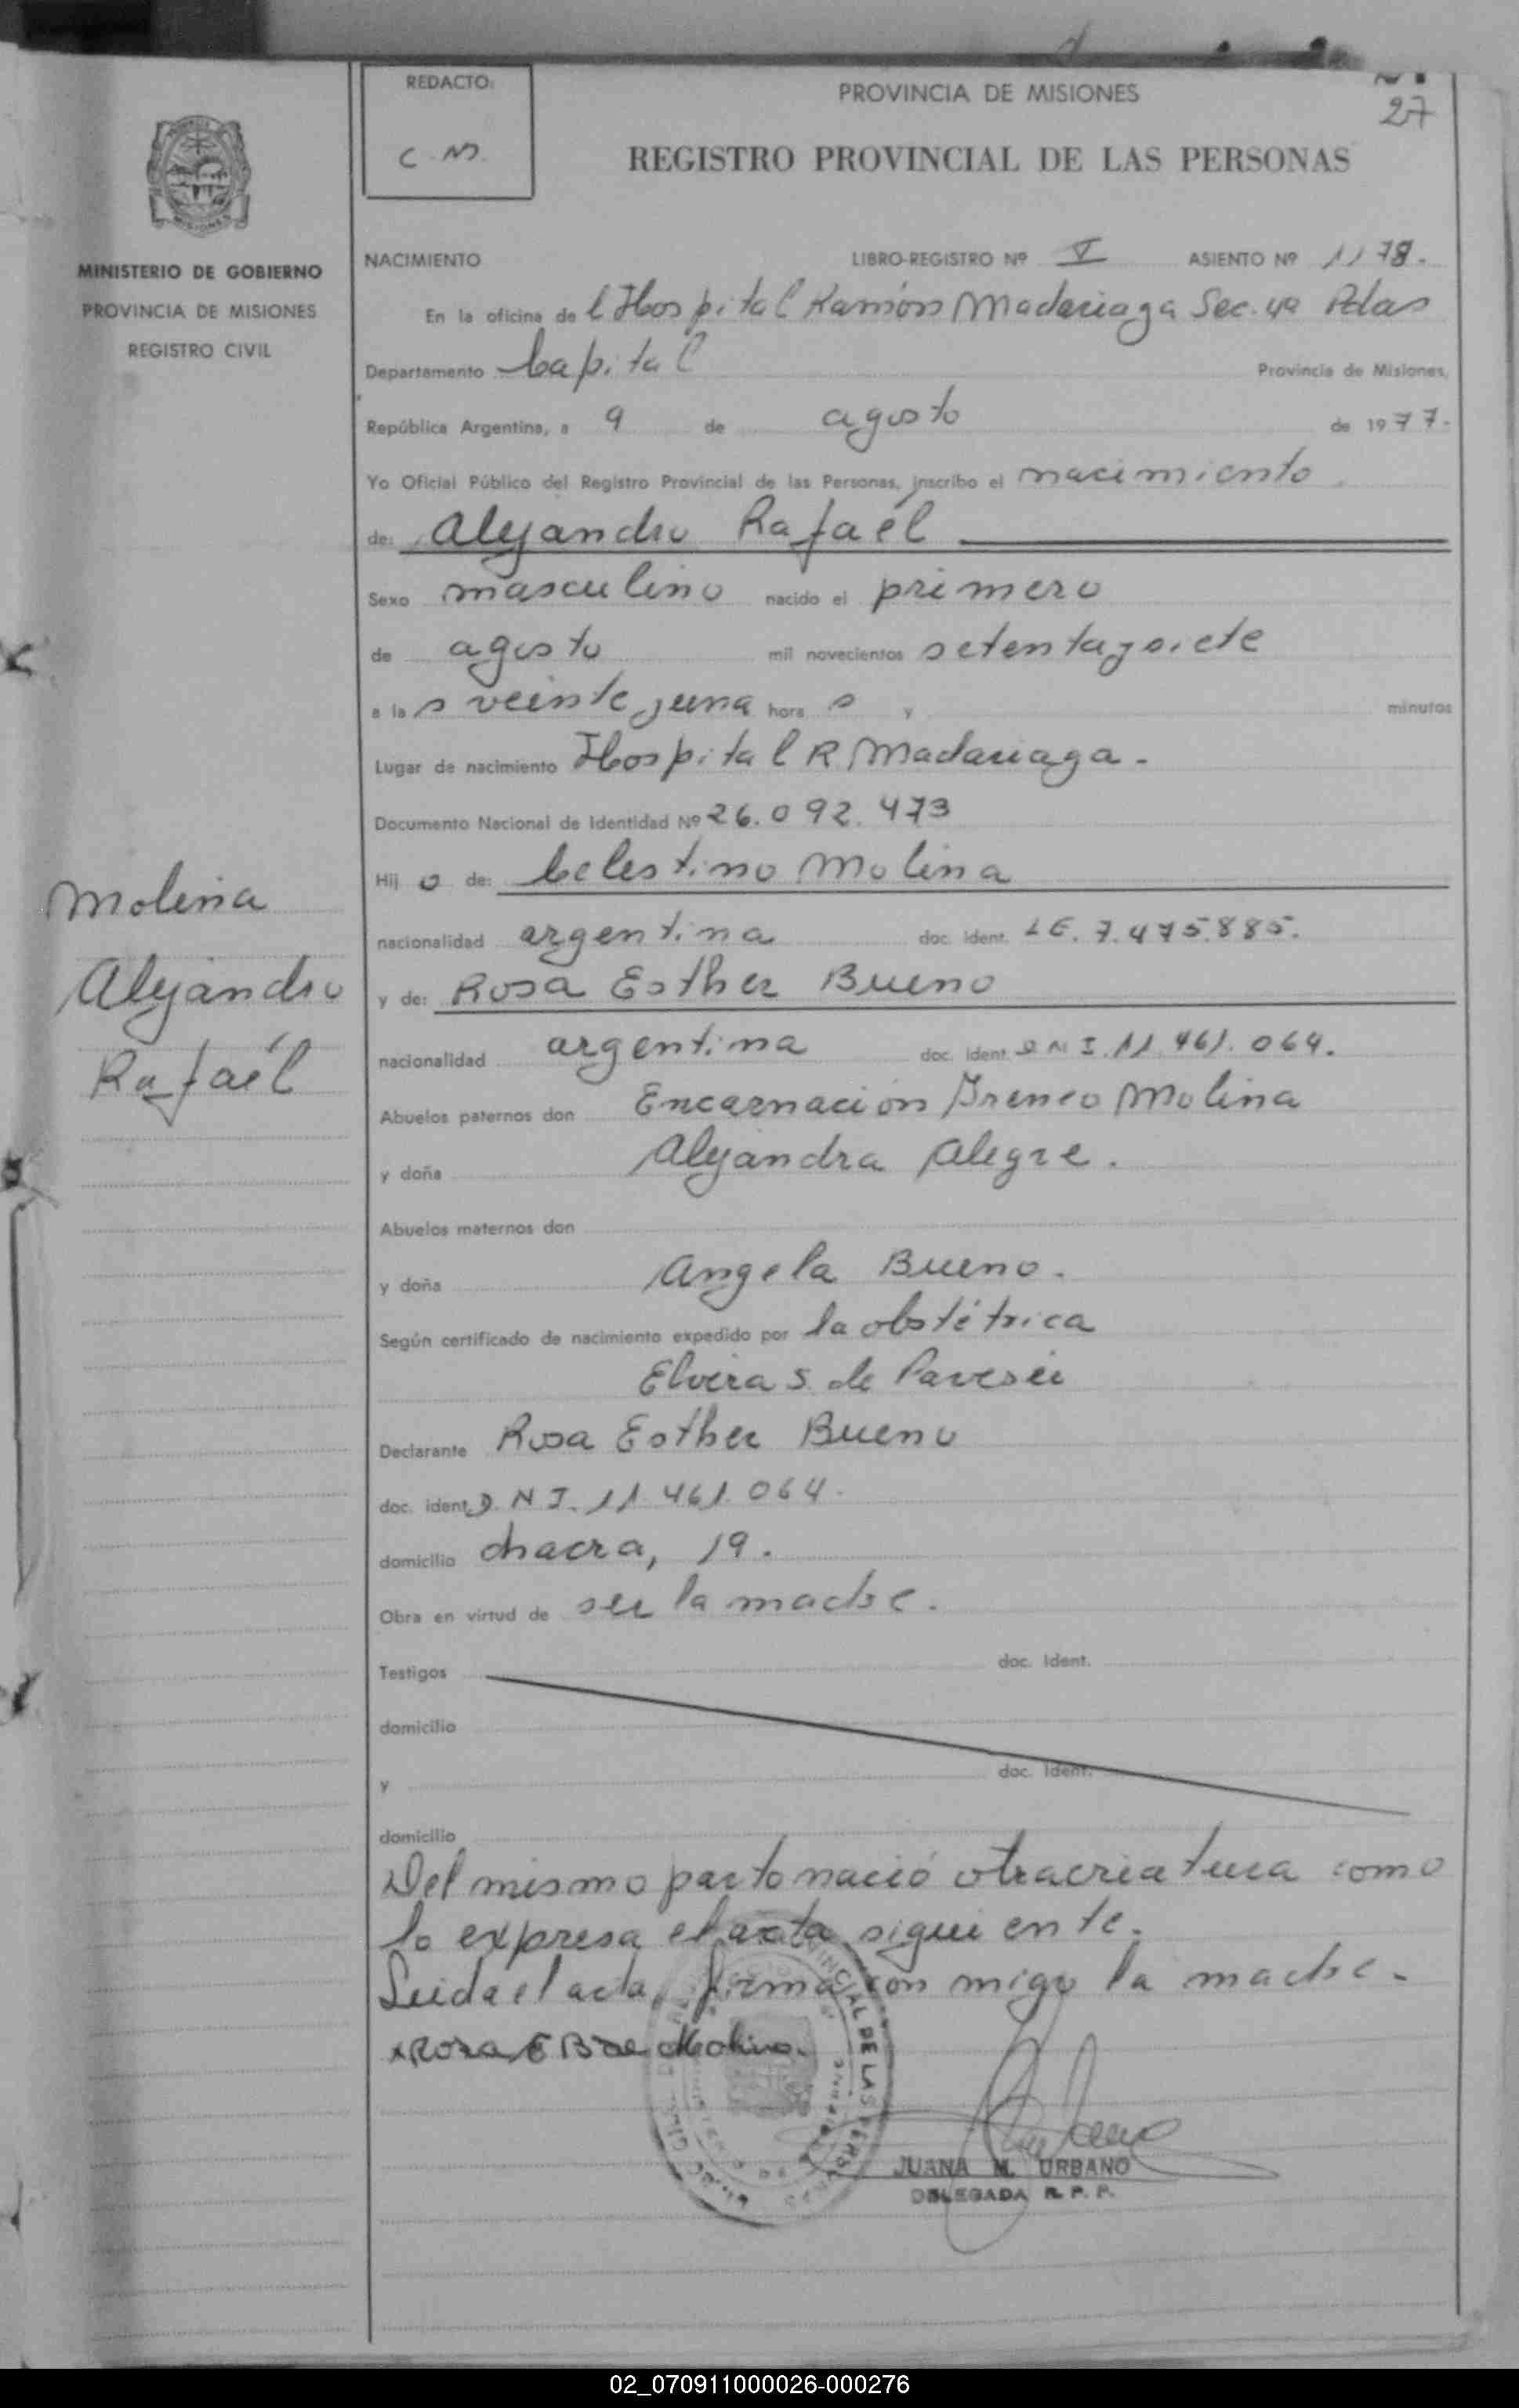 REDACTO:
C.M.
PROVINCIA DE MISIONES
27
REGISTRO PROVINCIAL DE LAS PERSONAS
MINISTERIO DE GOBIERNO
PROVINCIA DE MISIONES
REGISTRO CIVIL
NACIMIENTO LIBRO-REGISTRO Nº V ASIENTO Nº 1178.
En la oficina de l Hospital Ramón Madariaga Sec. 4a Pdas
Departamento Capital Provincia de Misiones,
República Argentina, a 9 de agosto de 1977.
Yo Oficial Público del Registro Provincial de las Personas, inscribo el nacimiento
de: Alejandro Rafaél
Sexo masculino nacido el primero
de agosto mil novecientos setentaysiete
a la s veinte y una hora s y minutos
Lugar de nacimiento Hospital R Madariaga.
Documento Nacional de Identidad Nº 26.092.473
Hij o de: Celestino Molina
nacionalidad argentina doc. ident. LE. 7.475.885.
y de: Rosa Esther Bueno
nacionalidad argentina doc. ident. DNI. 11.461.064.
Abuelos paternos don Encarnación Ireneo Molina
y doña Alejandra Alegre.
Abuelos maternos don
y doña Angela Bueno.
Según certificado de nacimiento expedido por la obstétrica
Elvira S. de
Declarante Rosa Esther Bueno
doc. ident. D.N.I. 11.461.064.
domicilio chacra, 19.
Obra en virtud de ser la madre.
Testigos doc. Ident.
domicilio
y doc. Ident.
domicilio
Del mismo parto nació otra criatura como
lo expresa el acta siguiente.
Leida el acta, firma con migo la madre.
x Rosa E B de Molina.
JUANA M. URBANO
DELEGADA R. P. P.
Molina
Alejandro
Rafaél
02_070911000026-000276